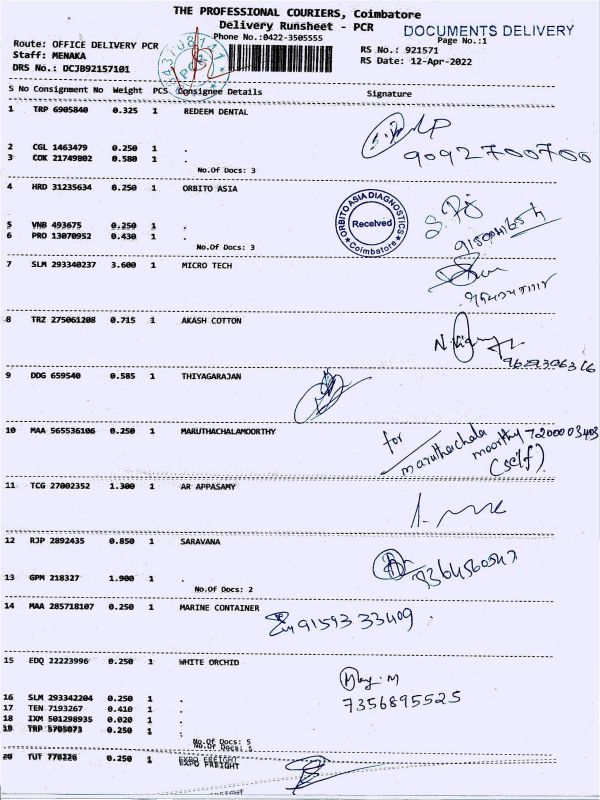 THE PROFESSIONAL COURIERS, Coimbatore
Delivery Runsheet - PCR
DOCUMENTS DELIVERY
Phone No.:0422-3505555
Page No.:1
Route: OFFICE DELIVERY PCR
RS No.: 921571
Staff: MENAKA
RS Date: 12-Apr-2022
DRS No.: DCJB92157101
S No Consignment No Weight PCS Consignee Details Signature
1 TRP 6905840 0.325 1 REDEEM DENTAL
9092700700
2 CGL 1463479 0.250 1 .
3 COK 21749802 0.580 1 .
No.Of Docs: 3
4 HRD 31235634 0.250 1 ORBITO ASIA
ORBITO ASIA DIAGNOSTICS Received Coimbatore
5 VNB 493675 0.250 1 .
6 PRO 13070952 0.430 1 .
No.Of Docs: 3
7 SLM 293340237 3.600 1 MICRO TECH
8 TRZ 275061208 0.715 1 AKASH COTTON
9 DDG 659540 0.585 1 THIYAGARAJAN
10 MAA 565536106 0.250 1 MARUTHACHALAMOORTHY
for maruthachala moorthy 7200003403
(self)
11 TCG 27002352 1.300 1 AR APPASAMY
12 RJP 2892435 0.850 1 SARAVANA
13 GPM 218327 1.900 1 .
No.Of Docs: 2
14 MAA 285718107 0.250 1 MARINE CONTAINER
9159333409
15 EDQ 22223996 0.250 1 WHITE ORCHID
7356895525
16 SLM 293342204 0.250 1 .
17 TEN 7193267 0.410 1 .
18 IXM 501298935 0.020 1 .
19 TRP 5705073 0.250 1 .
No.Of Docs: 5
No.Of Docs: 5
20 TUT 778226 0.250 1 EXPO FREIGHT
EXPO FREIGHT